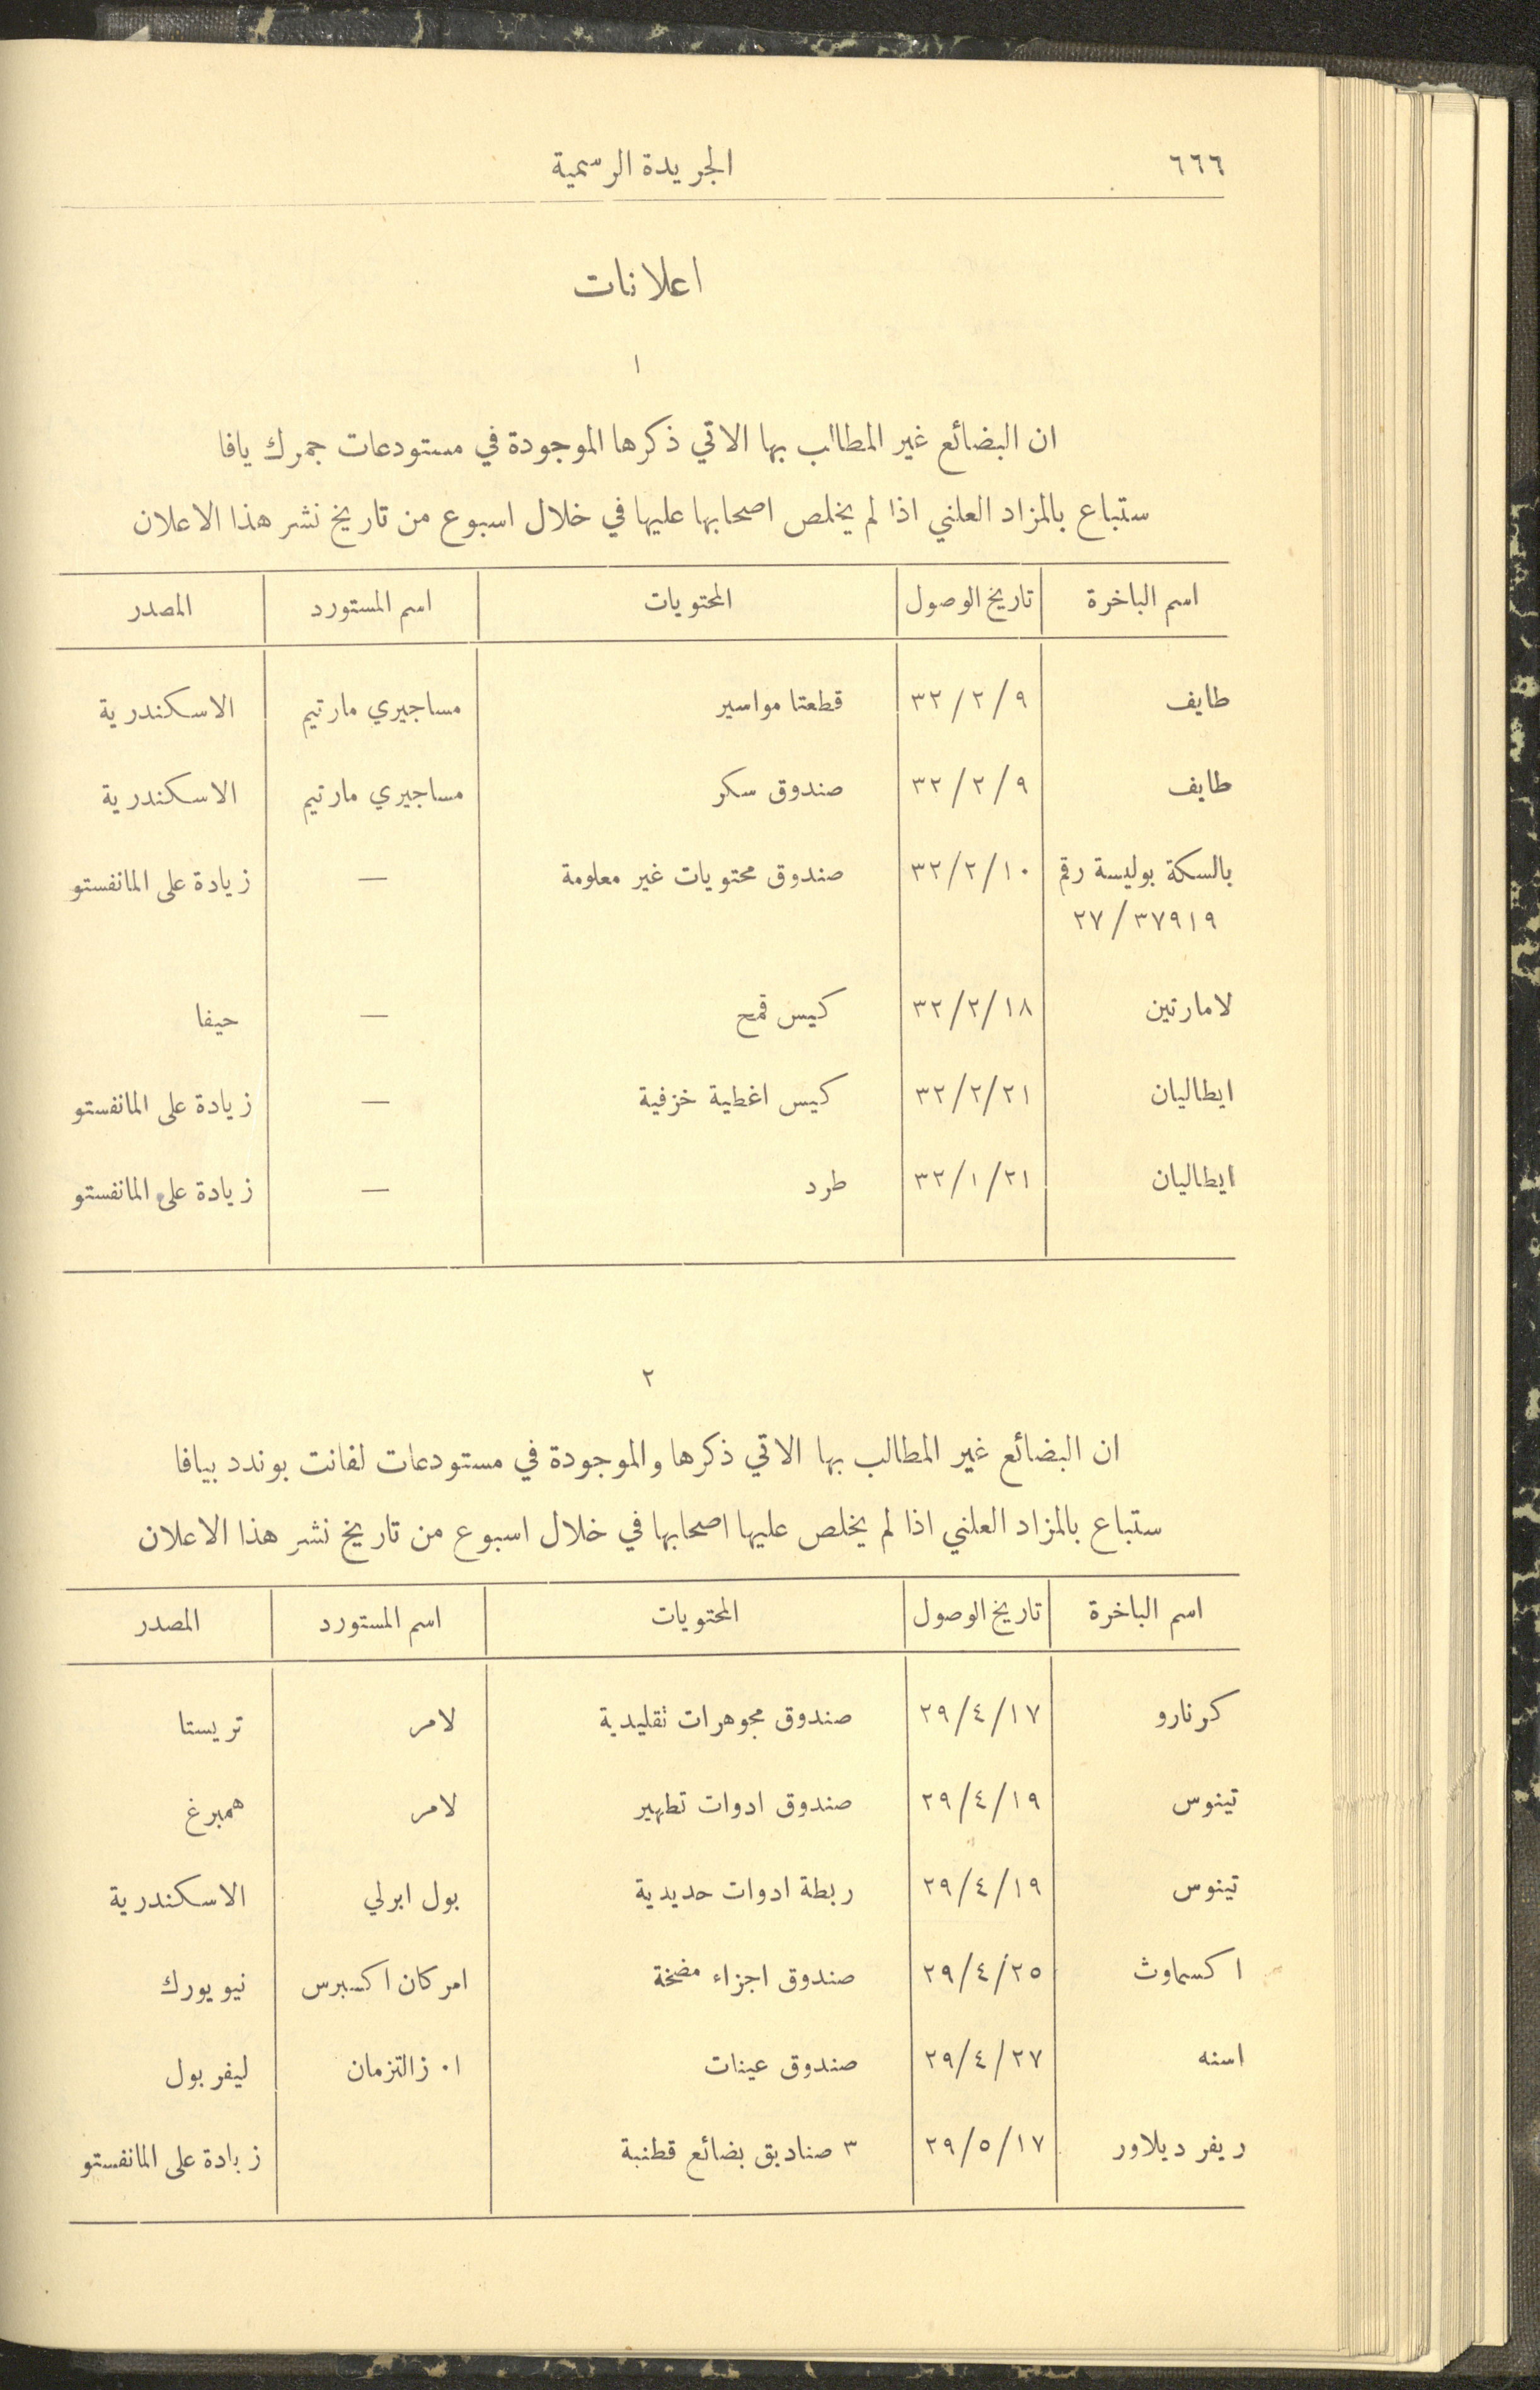 ٦٦٦
الجريدة الرسمية
اعلانات
١
ان البضائع غير المطالب بها الاتي ذكرها الموجودة في مستودعات جمرك يافا
ستباع بالمزاد العلني اذا لم يخلص اصحابها عليها في خلال اسبوع من تاريخ نشر هذا الاعلان
اسم الباخرة تاريخ الوصول المحتويات اسم المستورد المصدر
طايف ٣٢/٢/٩ قطعتا مواسير مساجيري مارتيم الاسكندرية
طايف ٣٢/٢/٩ صندوق سكر مساجيري مارتيم الاسكندرية
بالسكة بوليسة رقم ٣٢/٢/١٠ صندوق محتويات غير معلومة — زيادة على المانفستو
٢٧/٣٧٩١٩
لامارتين ٣٢/٢/١٨ كيس قمح — حيفا
ايطاليان ٣٢/٢/٢١ كيس اغطية خزفية — زيادة على المانفستو
ايطاليان ٣٢/١/٢١ طرد — زيادة على المانفستو
٢
ان البضائع غير المطالب بها الاتي ذكرها والموجودة في مستودعات لفانت بوندد بيافا
ستباع بالمزاد العلني اذا لم يخلص عليها اصحابها في خلال اسبوع من تاريخ نشر هذا الاعلان
اسم الباخرة تاريخ الوصول المحتويات اسم المستورد المصدر
كرنارو ٢٩/٤/١٧ صندوق مجوهرات تقليدية لامر تريستا
تينوس ٢٩/٤/١٩ صندوق ادوات تطهير لامر همبرغ
تينوس ٢٩/٤/١٩ ربطة ادوات حديدية بول ابرلي الاسكندرية
اكسماوث ٢٩/٤/٢٥ صندوق اجزاء مضخة امركان اكسبرس نيويورك
اسنه ٢٩/٤/٢٧ صندوق عينات ا. زالتزمان ليفربول
ريفر ديلاور ٢٩/٥/١٧ ٣ صناديق بضائع قطنية زيادة على المانفستو